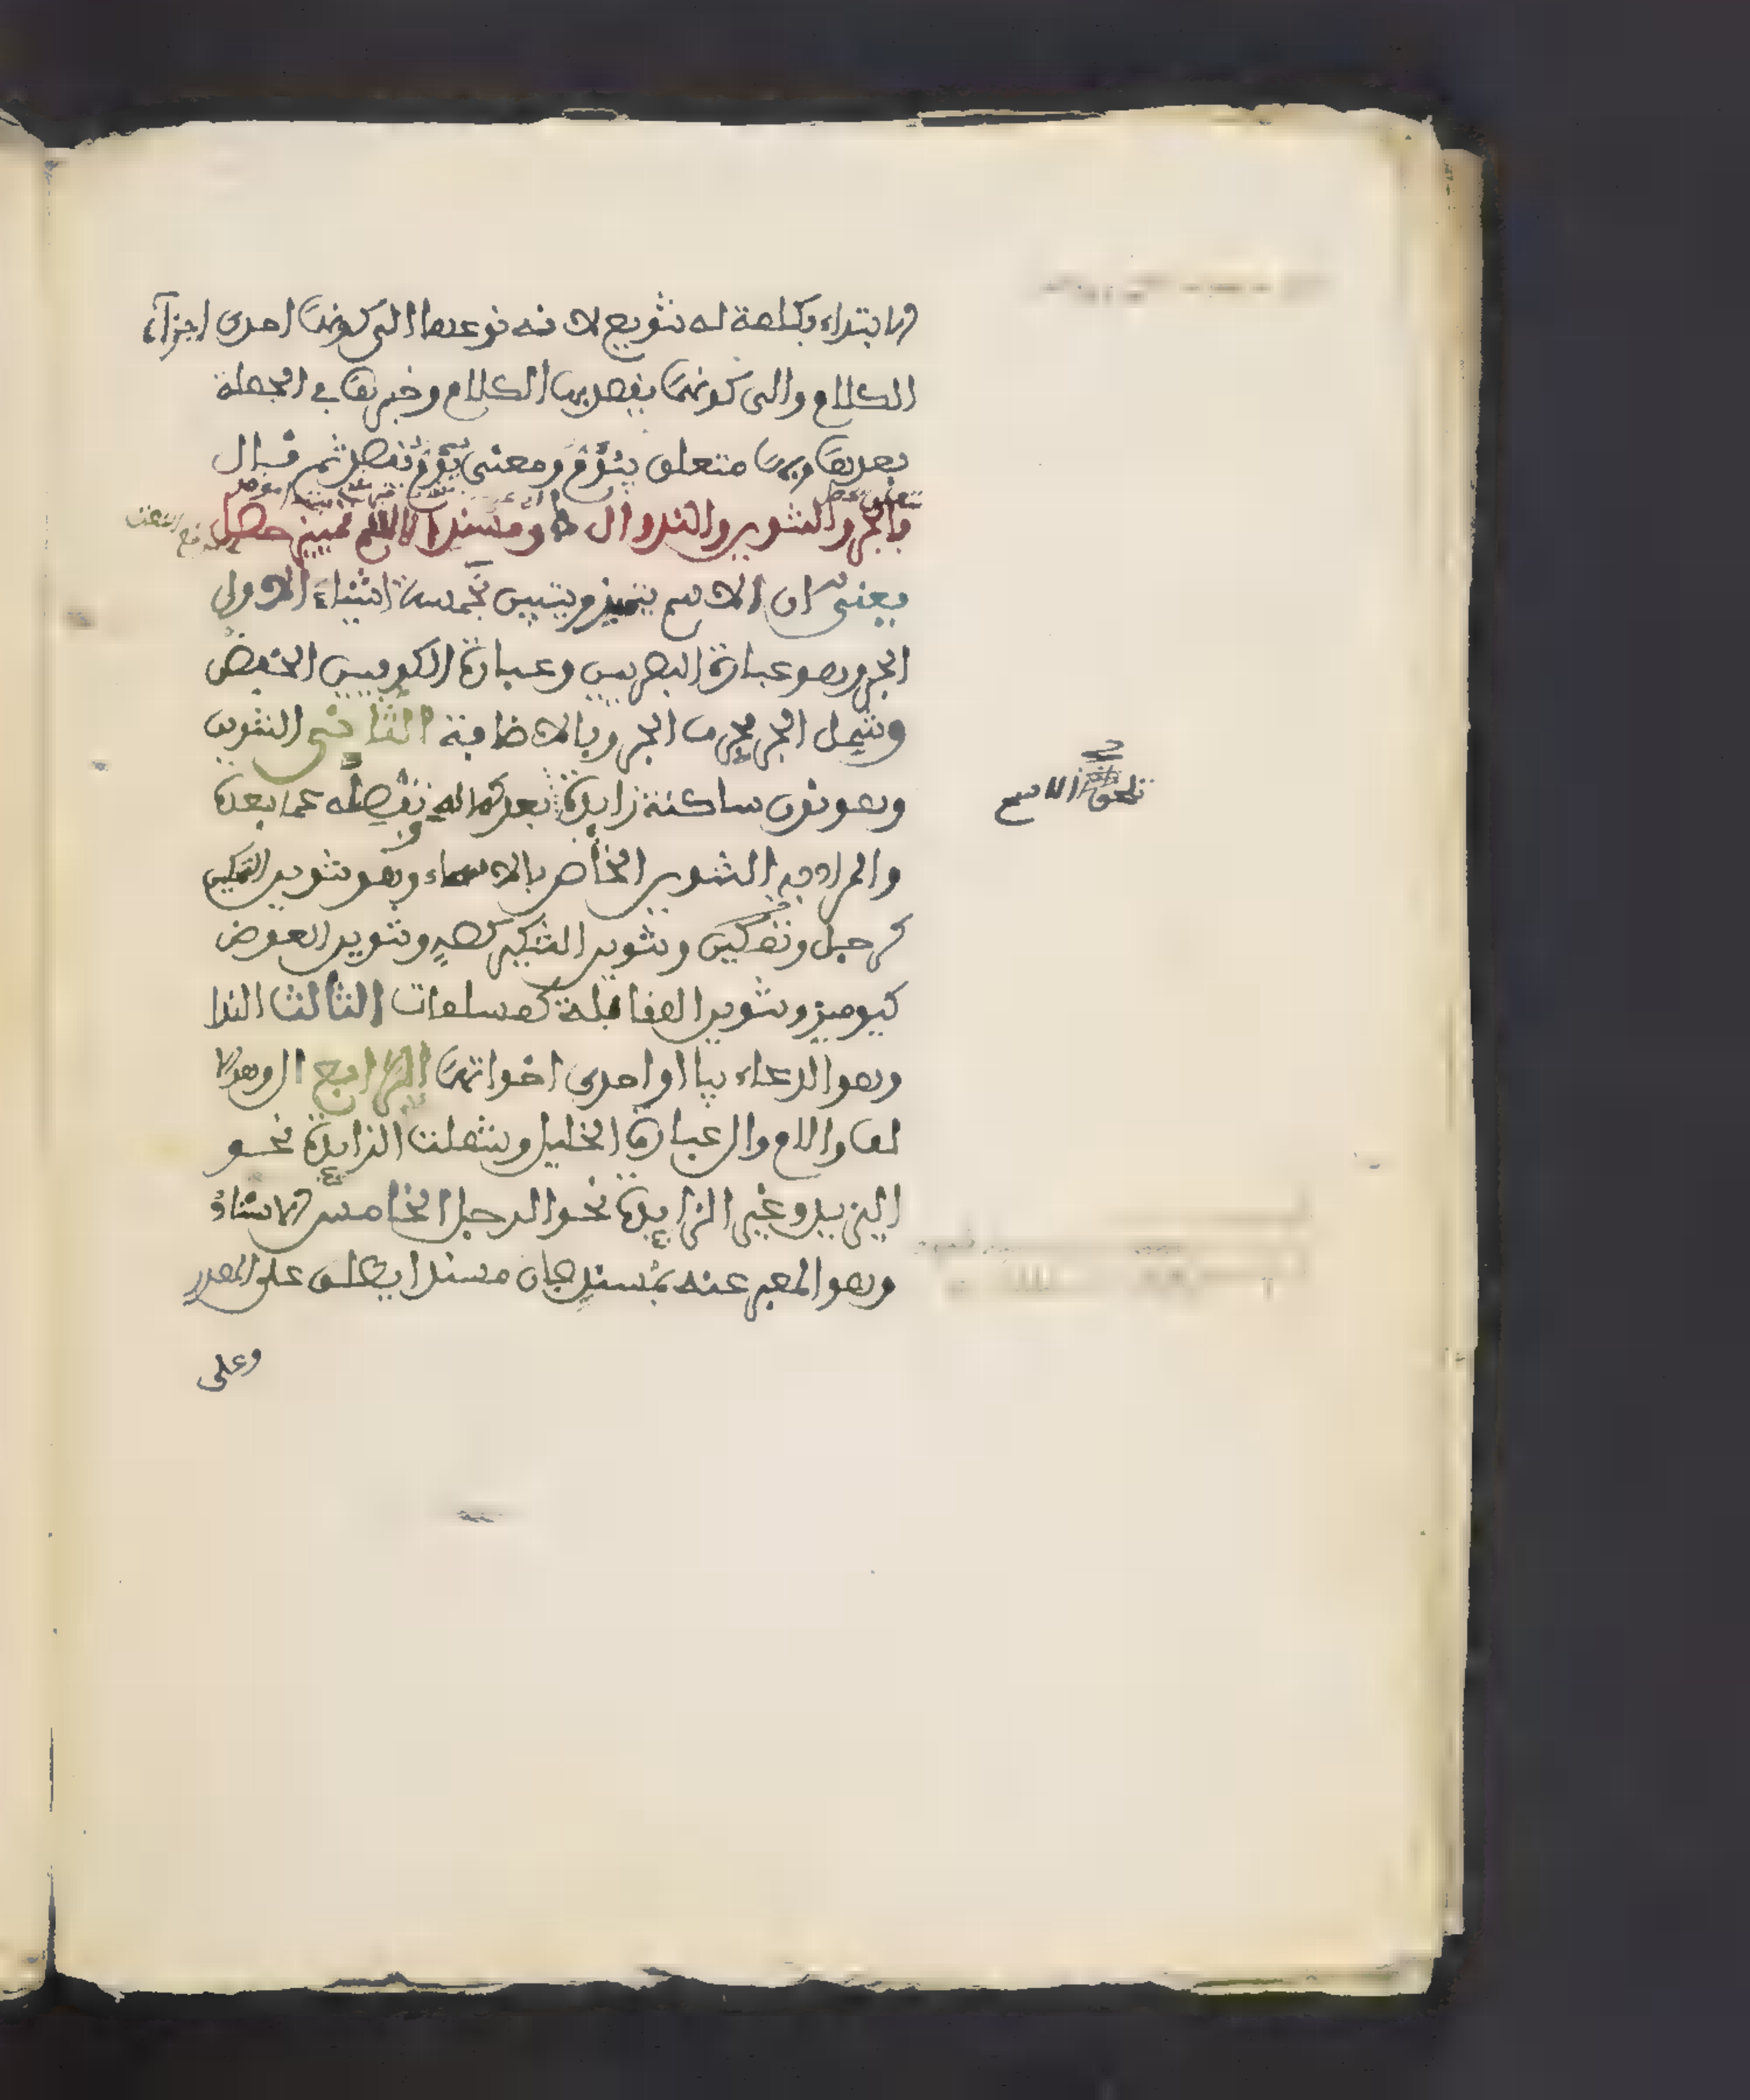 الابتداء بكلمة له تنويع لانه نوعها الى كونها احدى اجزاء
الكلام والى كونها يقصد بها الكلام وخبرها في الجملة
بعدها وبها متعلق بيؤم ومعنى يؤم يقصد ثم قال
بالجر والتنوين والندا وال ومسند للاسم تمييز حصل
يعنى ان الاسم يتميز ويتبين بخمسة اشياء الاول
الجر وهو عبارة البصريين وعبارة الكوفيين الخفض
وشمل الجر بحرف الجر وبالاضافة الثاني التنوين
وهو نون ساكنة زايدة بعد كماله تفصله عما بعده
تلحق الاسم
والمراد به التنوين الخاص بالاسماء وهو تنوين التمكين
كرجل وتنوين التنكير كصه وتنوين العوض
كيوميذ وتنوين المقابلة كمسلمات الثالث الندا
وهو الدعاء بيا او احدى اخواتها الرابع ال وهو الا
لف واللام وال عبارة الخليل وشملت الزايدة نحو
اليزيد وغير الزايدة نحو الرجل الخامس الاسناد
وهو المعبر عنه بمسند فان مسندا يطلق على المصدر
وعلى